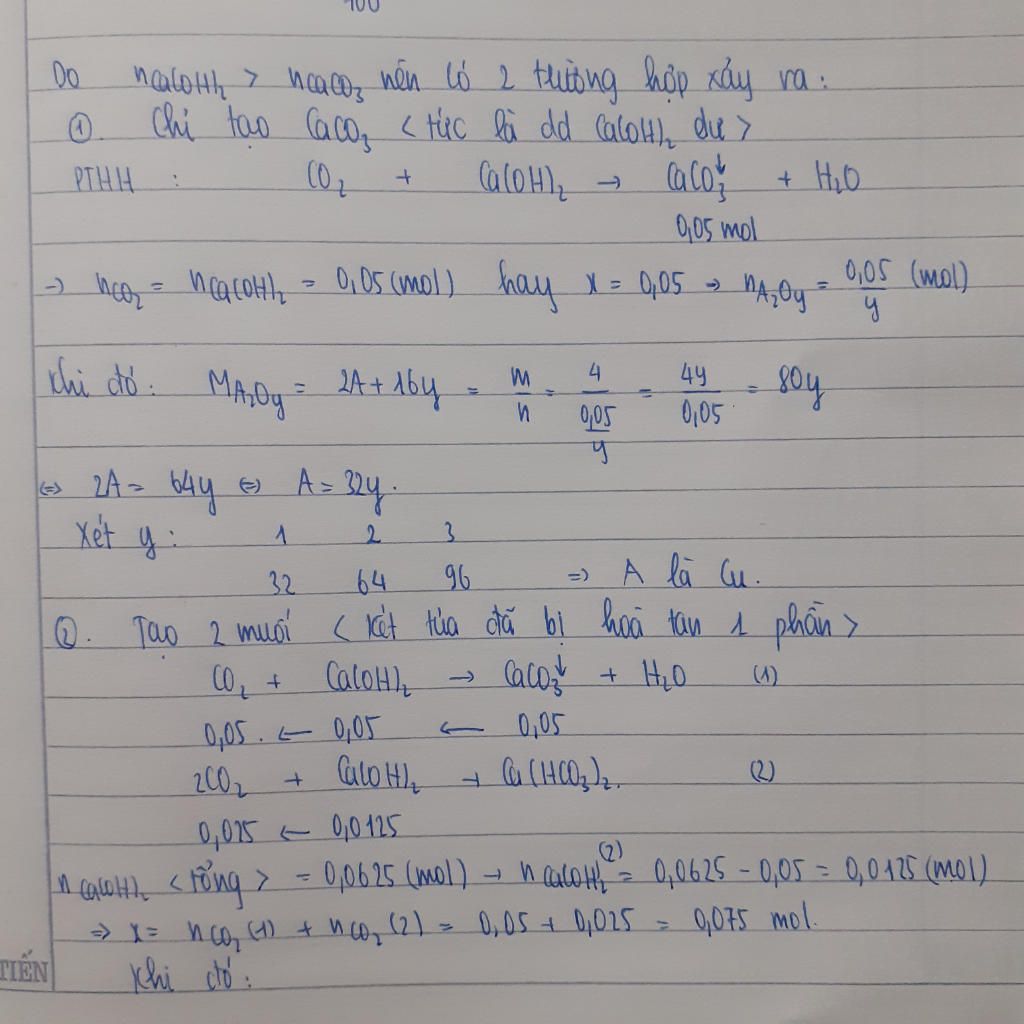 100
Do nCa(OH)₂ > nCaCO₃ nên có 2 trường hợp xảy ra:
①. Chỉ tạo CaCO₃ < tức là dd Ca(OH)₂ dư >
PTHH : CO₂ + Ca(OH)₂ → CaCO₃↓ + H₂O
0,05 mol
→ nCO₂ = nCa(OH)₂ = 0,05 (mol) hay x = 0,05 → nA₂Oy = 0,05/y (mol)
Khi đó: MA₂Oy = 2A + 16y = m/n = 4/(0,05/y) = 4y/0,05 = 80y
⇔ 2A = 64y ⇔ A = 32y.
Xét y: 1 2 3
32 64 96 ⇒ A là Cu.
②. Tạo 2 muối < kết tủa đã bị hoà tan 1 phần >
CO₂ + Ca(OH)₂ → CaCO₃↓ + H₂O (1)
0,05 ← 0,05 ← 0,05
2CO₂ + Ca(OH)₂ → Ca(HCO₃)₂. (2)
0,025 ← 0,0125
nCa(OH)₂ < tổng > = 0,0625 (mol) → nCa(OH)₂⁽²⁾ = 0,0625 - 0,05 = 0,0125 (mol)
⇒ x = nCO₂ (1) + nCO₂ (2) = 0,05 + 0,025 = 0,075 mol.
Khi đó:
TIẾN